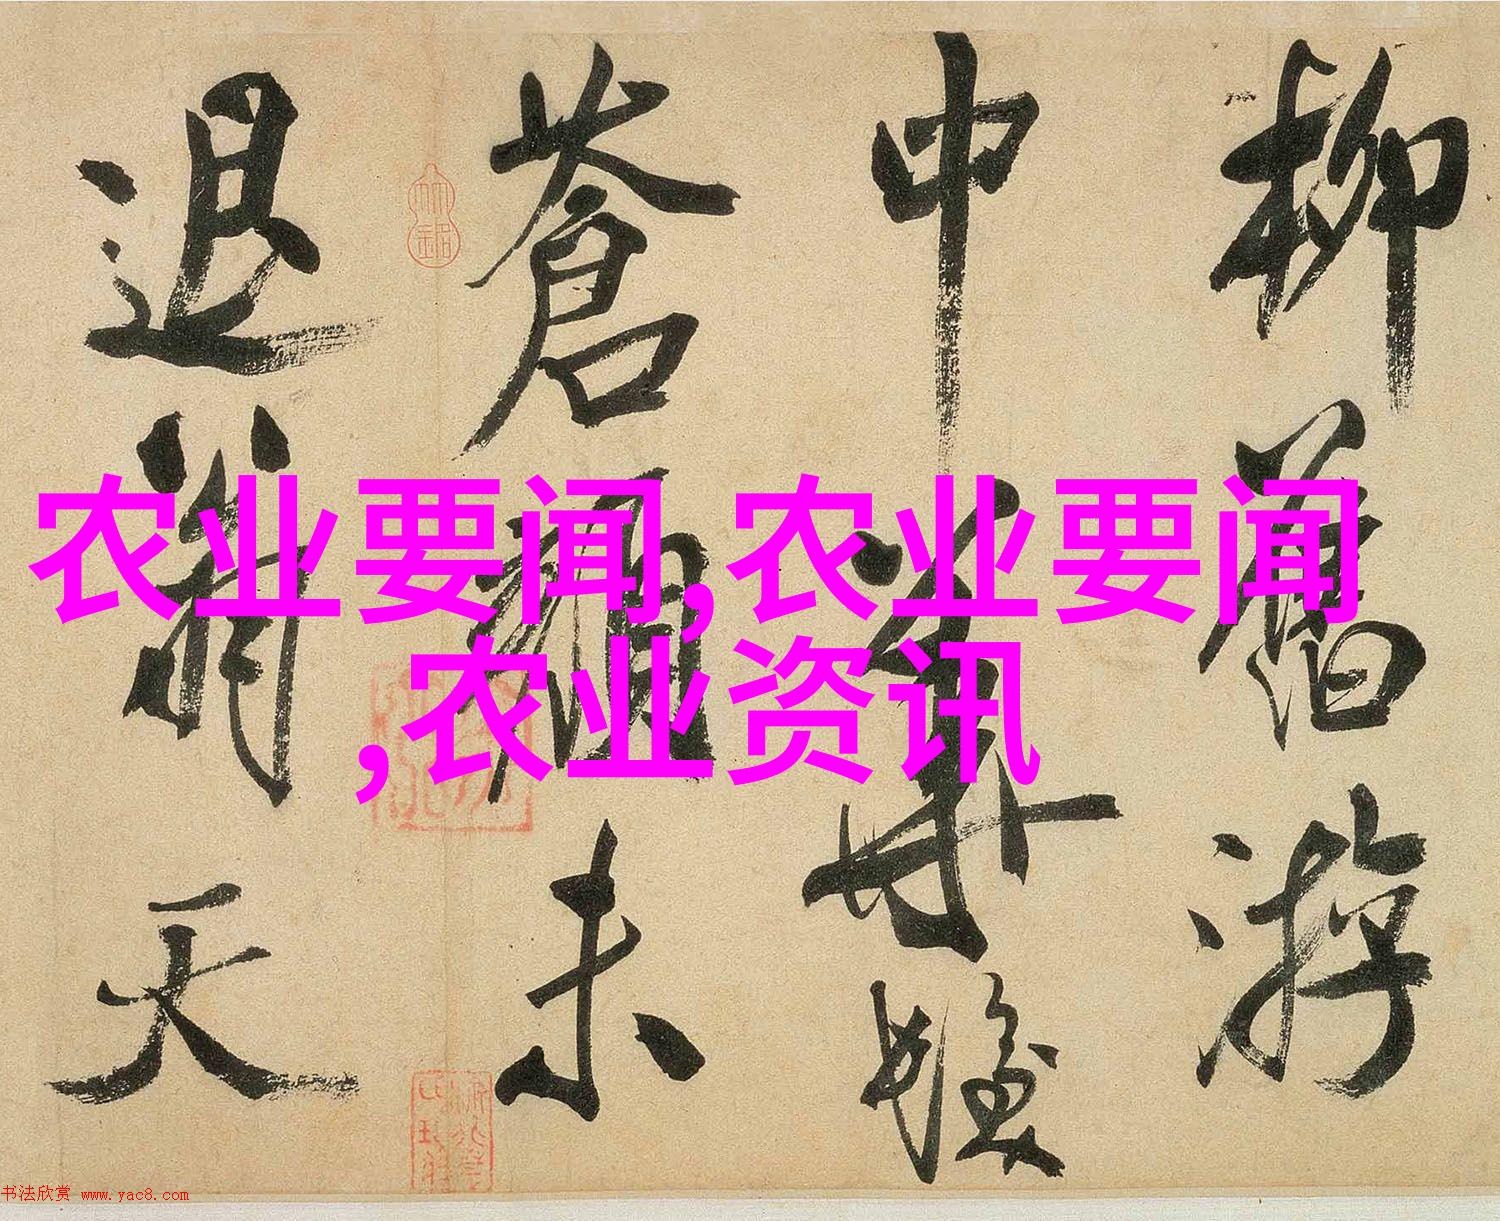 柳舊游
中華髮
蒼顏未
退翁天
农业要闻,农业要闻
,农业资讯
书法欣赏 www.yac8.com